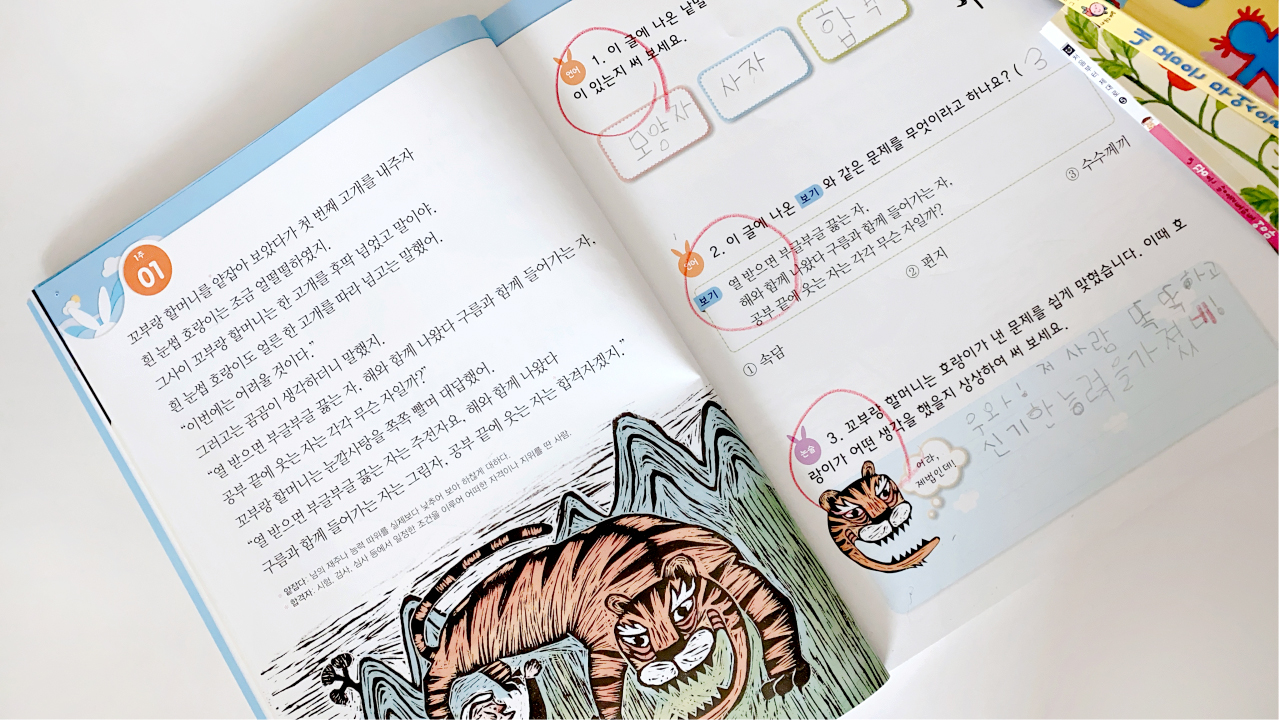 1주
01
꼬부랑 할머니를 얕잡아 보았다가 첫 번째 고개를 내주자
흰 눈썹 호랑이는 조금 얼떨떨하였지.
그사이 꼬부랑 할머니는 한 고개를 후딱 넘었고 말이야.
흰 눈썹 호랑이도 얼른 한 고개를 따라 넘고는 말했어.
"이번에는 어려울 것이다."
그러고는 곰곰이 생각하더니 말했지.
"열 받으면 부글부글 끓는 자, 해와 함께 나왔다 구름과 함께 들어가는 자,
공부 끝에 웃는 자는 각각 무슨 자일까?"
꼬부랑 할머니는 눈깔사탕을 쪽쪽 빨며 대답했어.
"열 받으면 부글부글 끓는 자는 주전자요, 해와 함께 나왔다
구름과 함께 들어가는 자는 그림자, 공부 끝에 웃는 자는 합격자겠지."
얕잡다: 남의 재주나 능력 따위를 실제보다 낮추어 보아 하찮게 대하다.
합격자: 시험, 검사, 심사 등에서 일정한 조건을 이루어 어떠한 자격이나 지위를 딴 사람.
언어
1. 이 글에 나온 낱말
이 있는지 써 보세요.
모양자
사자
언어
2. 이 글에 나온 보기 와 같은 문제를 무엇이라고 하나요? ( 3
보기
열 받으면 부글부글 끓는 자,
해와 함께 나왔다 구름과 함께 들어가는 자,
공부 끝에 웃는 자는 각각 무슨 자일까?
① 속담
② 편지
③ 수수께끼
논술
3. 꼬부랑 할머니는 호랑이가 낸 문제를 쉽게 맞혔습니다. 이때 호
랑이가 어떤 생각을 했을지 상상하여 써 보세요.
어라,
제법인데!
우와! 저 사람 똑똑하고
신기한 능력을 가졌네!